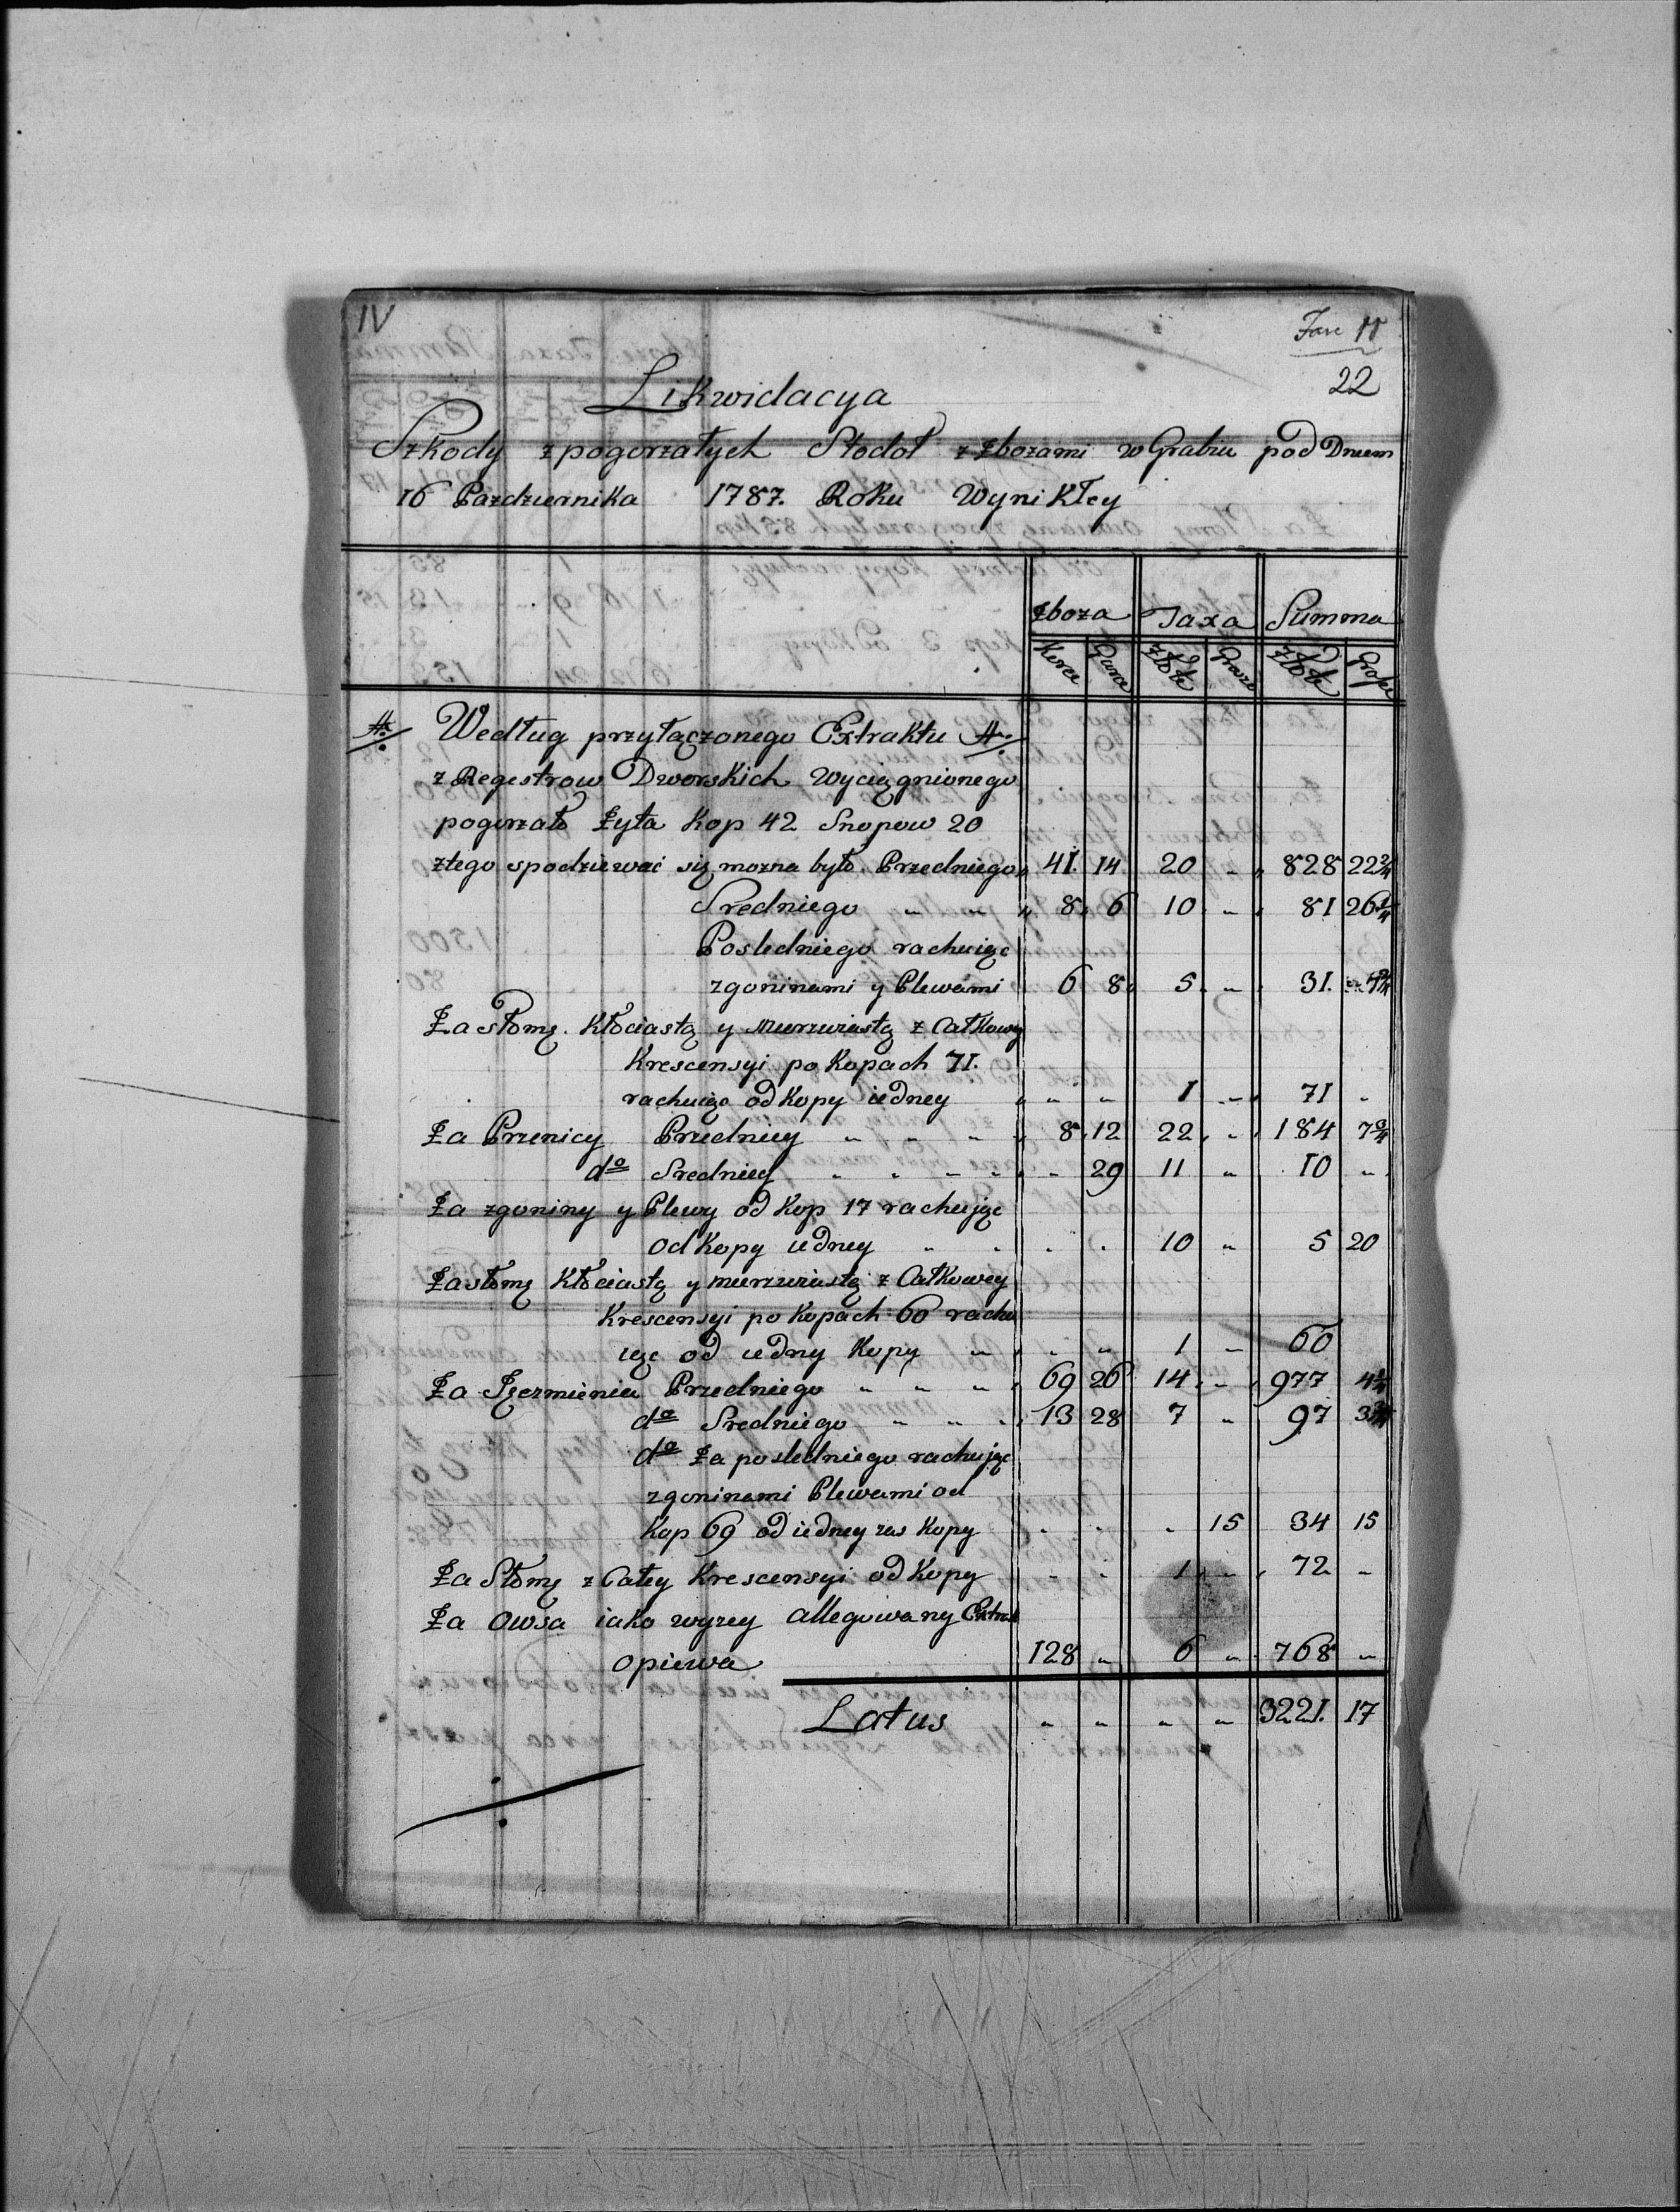 IV
22
Likwidacya
Szkody z pogorzałych Stodoł z Zbozami w Grabiu pod Dniem
16 Pazdziernika 1787. Roku Wynikłey
Zboza Taxa Summa
Korce Garce Złote Grosze Złote Grosze
A. Według przyłączonego Extraktu A.
z Regestrow Dworskich wyciągnionego
pogorzało Zyta Kop 42 Snopow 20
z tego spodziewać się mozna było Przedniego 41. 14 20 " 828 22 2/4
Sredniego " " 8 6 10 " 81 26 1/4
Posledniego rachuiąc
zgoninami y Plewami 6 8 5 " 31.
Za słomę Kłociastą y Mierzwiastą z Całkowey
Krescensyi po Kopach 71.
rachuiąc od Kopy iedney " " 1 " 71 "
Za Przenicy Przedniey " " " 8 12 22 " 184 7 3/4
do Sredniey " " " " " 29 11 " 10 "
Za zgoniny y Plewy od Kop 17 rachując
od Kopy iedney " " " " 10 " 5 20
Za słomę Kłociastą y mierzwiastą z Całkowey
Krescensyi po Kopach 60 rachu
iąc od iedny Kopy " " " 1 " 60
Za Jęczmienia Przedniego " " " 69 26 14 " 977
do Sredniego " " " 13 28 7 " 97
do Za posledniego rachując
zgoninami Plewami od
Kop 69 od iedney zas Kopy " " " 15 34 15
Za Słomę z Całey Krescensyi od Kopy " " 1 " 72 "
Za Owsa iako wyzey allegowany Extrak
opiewa 128 " 6 " 768 "
Latus " " " " 3221. 17